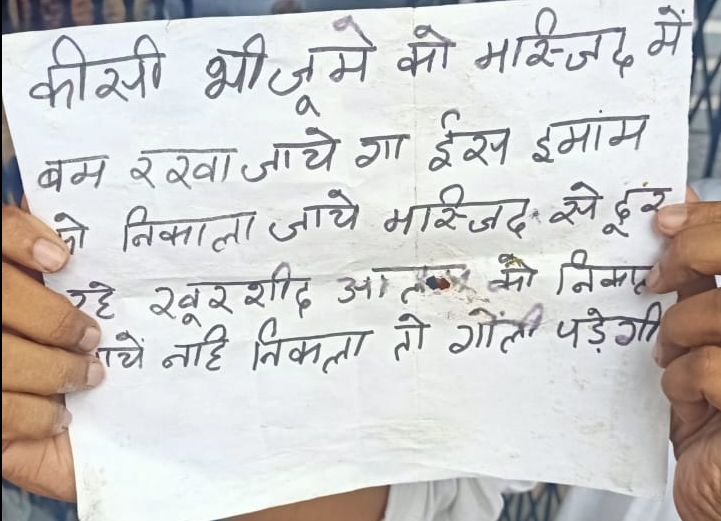 कीसी भी जूमे को मास्जिद में
बम रखा जाये गा ईस इमांम
को निकाला जाये मास्जिद से दूर
रहे खूरशीद को
नहि निकला तो गोंली पड़ेगी